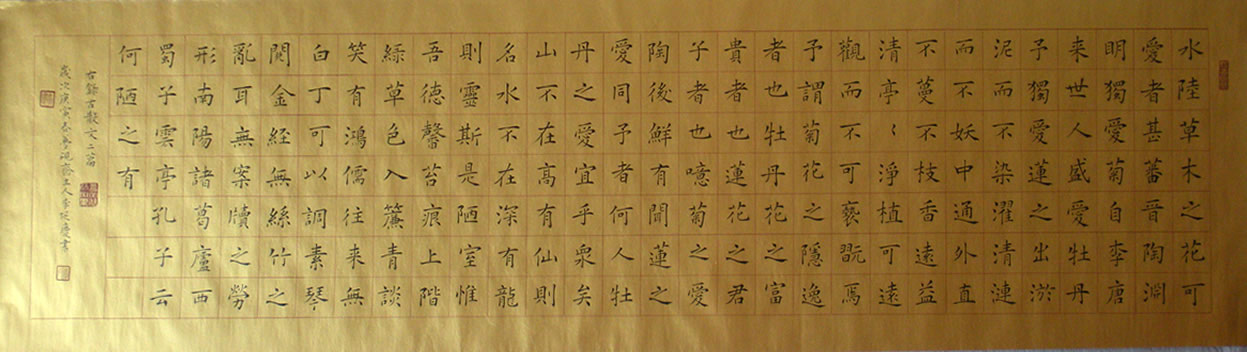 水陸草木之花可
愛者甚蕃晉陶淵
明獨愛菊自李唐
来世人盛愛牡丹
予獨愛蓮之出淤
泥而不染濯清漣
而不妖中通外直
不蔓不枝香遠益
清亭〻淨植可遠
觀而不可褻翫焉
予謂菊花之隱逸
者也牡丹花之富
貴者也蓮花之君
子者也噫菊之愛
陶後鮮有聞蓮之
愛同予者何人牡
丹之愛宜乎衆矣
山不在高有仙則
名水不在深有龍
則靈斯是陋室惟
吾德馨苔痕上階
綠草色入簾青談
笑有鴻儒往来無
白丁可以調素琴
閱金經無絲竹之
亂耳無案牘之勞
形南陽諸葛廬西
蜀子雲亭孔子云
何陋之有
右錄古散文二篇
歲次庚寅春硯齋主人李書